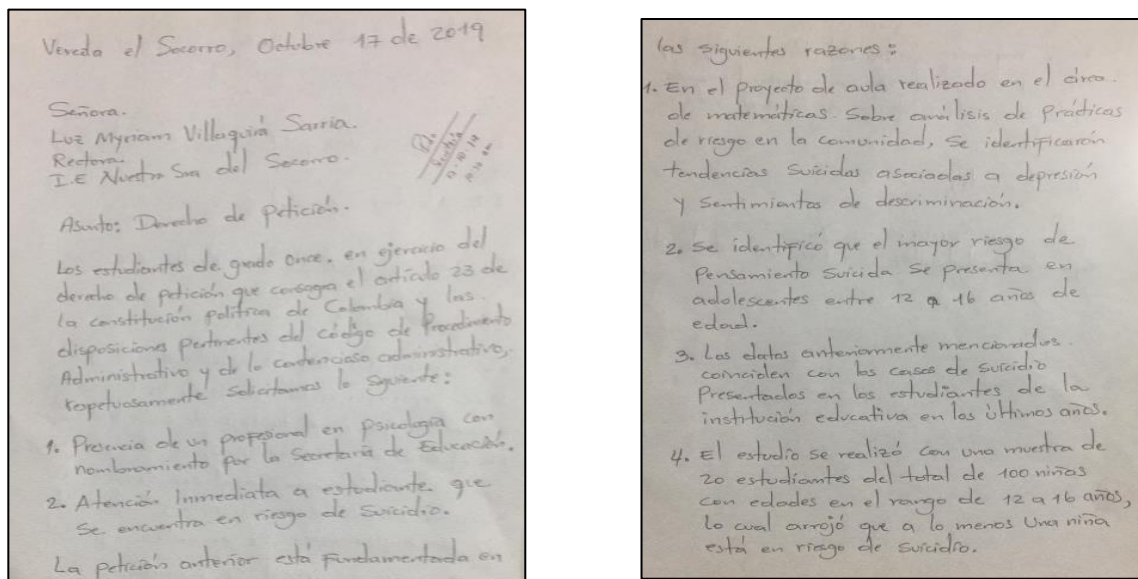 Vereda el Socorro, Octubre 17 de 2019
Señora.
Luz Myriam Villaquirá Sarria.
Rectora.
I.E Nuestra Sra del Socorro.
Asunto: Derecho de Petición.
Los estudiantes de grado once, en ejercicio del
derecho de petición que consagra el artículo 23 de
la constitución política de Colombia y las
disposiciones pertinentes del código de Procedimiento
Administrativo y de lo contencioso administrativo,
respetuosamente solicitamos lo siguiente:
1. Presencia de un profesional en psicología con
nombramiento por la Secretaría de Educación.
2. Atención Inmediata a estudiante que
se encuentra en riesgo de suicidio.
La petición anterior está fundamentada en
las siguientes razones:
1. En el proyecto de aula realizado en el área.
de matemáticas. Sobre análisis de Prácticas
de riesgo en la comunidad, se identificarón
tendencias suicidas asociadas a depresión
y sentimientos de descriminación.
2. Se identificó que el mayor riesgo de
Pensamiento suicida se presenta en
adolescentes entre 12 a 16 años de
edad.
3. Los datos anteriormente mencionados
coinciden con los casos de suicidio
Presentados en los estudiantes de la
institución educativa en los últimos años.
4. El estudio se realizó con una muestra de
20 estudiantes del total de 100 niños
con edades en el rango de 12 a 16 años,
lo cual arrojó que a lo menos una niña
está en riesgo de suicidio.